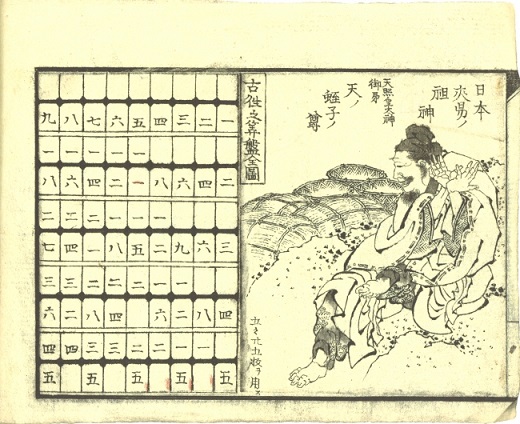 日本
交易ノ
祖神
天照皇大神
御弟
天ノ
蛭子ノ
尊
古徃之筭盤全圖
九 八 七 六 五 四 三 二 一
一 一 一 一
八 六 四 二 一 八 六 四 二
二 二 一 一 一
七 四 一 八 五 二 九 六 三
三 三 二 二 二 一 一
六 二 八 四 六 二 八 四
四 四 三 三 二 二 一 一
五 五 五 五 五